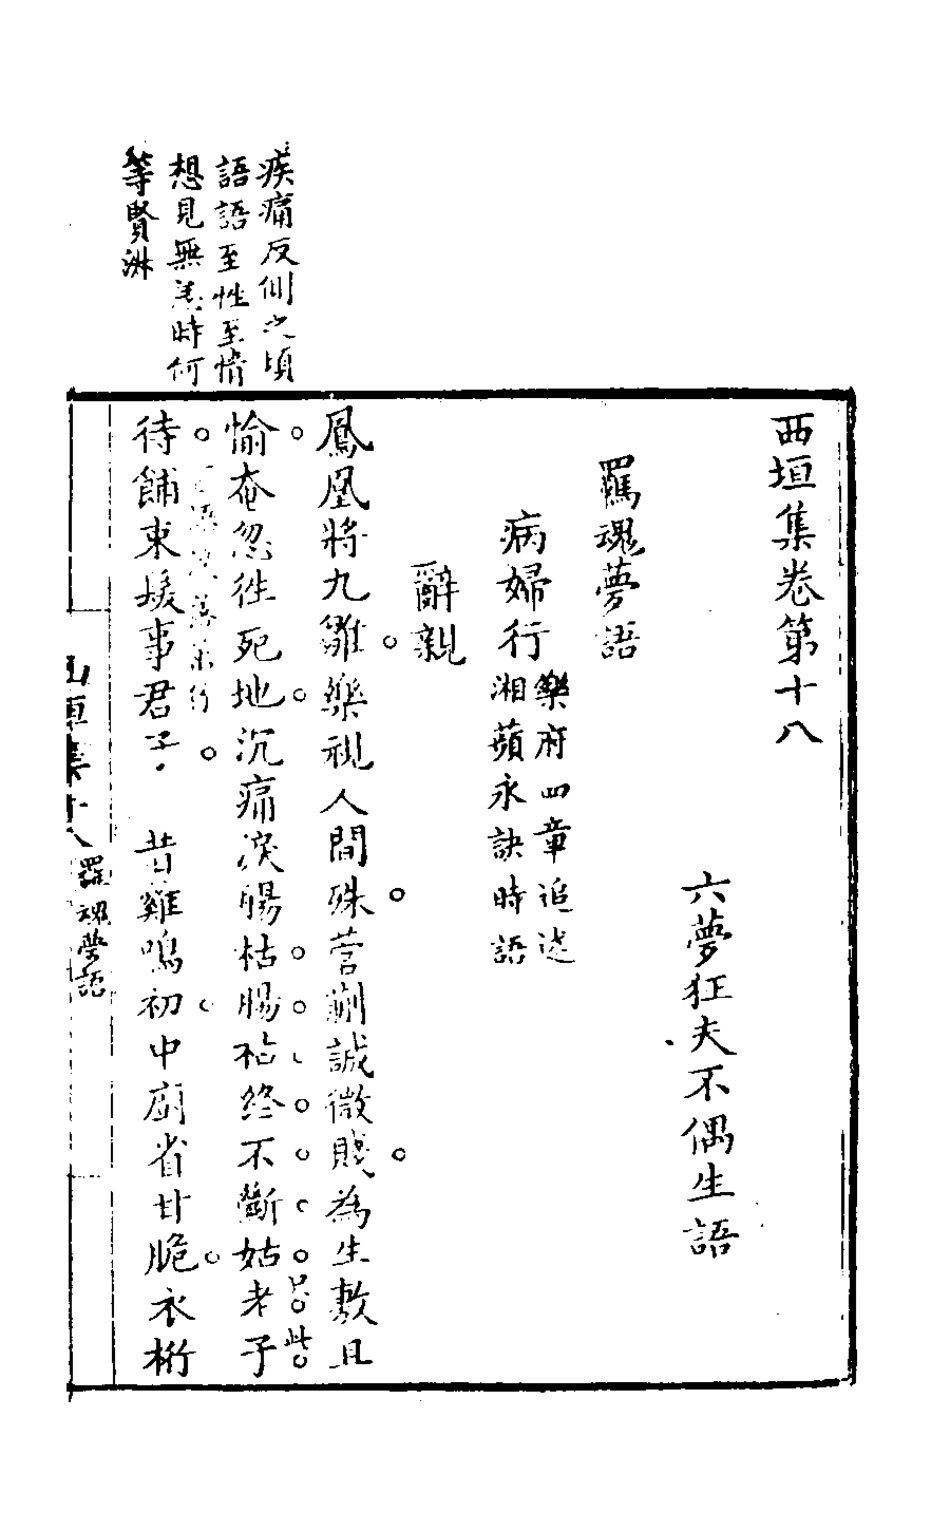 西垣集卷第十八
六夢狂夫不偶生語
羈魂夢語
病婦行
樂府四章追述
湘蘋永訣時語
辭親
鳳凰將九雛樂視人間殊菅蒯誠微賤為生敷且
愉奄忽徃死地沉痛淚腸枯腸枯終不斷姑老子
只此
待餔東媛事君子 昔雞鳴初中廚省甘脆衣桁
疾痛反側之頃
語語至性至情
想見無恙時何
等賢淋
羈魂夢語